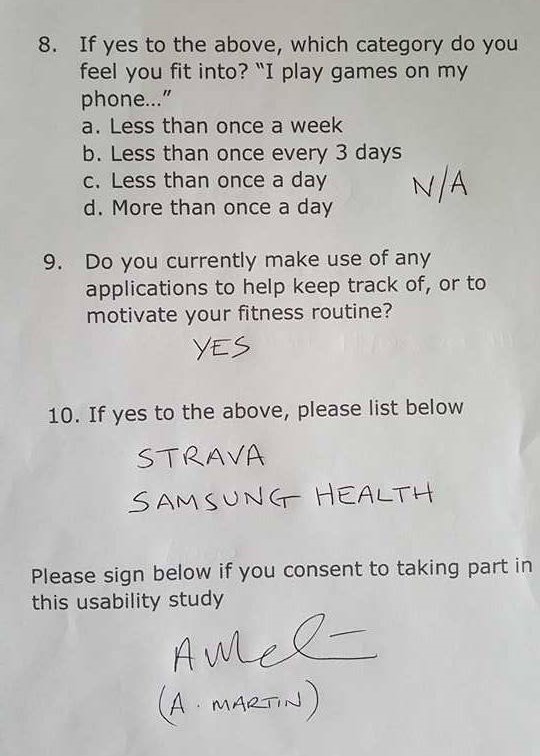 8. If yes to the above, which category do you
feel you fit into? "I play games on my
phone..."
a. Less than once a week
b. Less than once every 3 days
c. Less than once a day
N/A
d. More than once a day
9. Do you currently make use of any
applications to help keep track of, or to
motivate your fitness routine?
YES
10. If yes to the above, please list below
STRAVA
SAMSUNG HEALTH
Please sign below if you consent to taking part in
this usability study
(A. MARTIN)